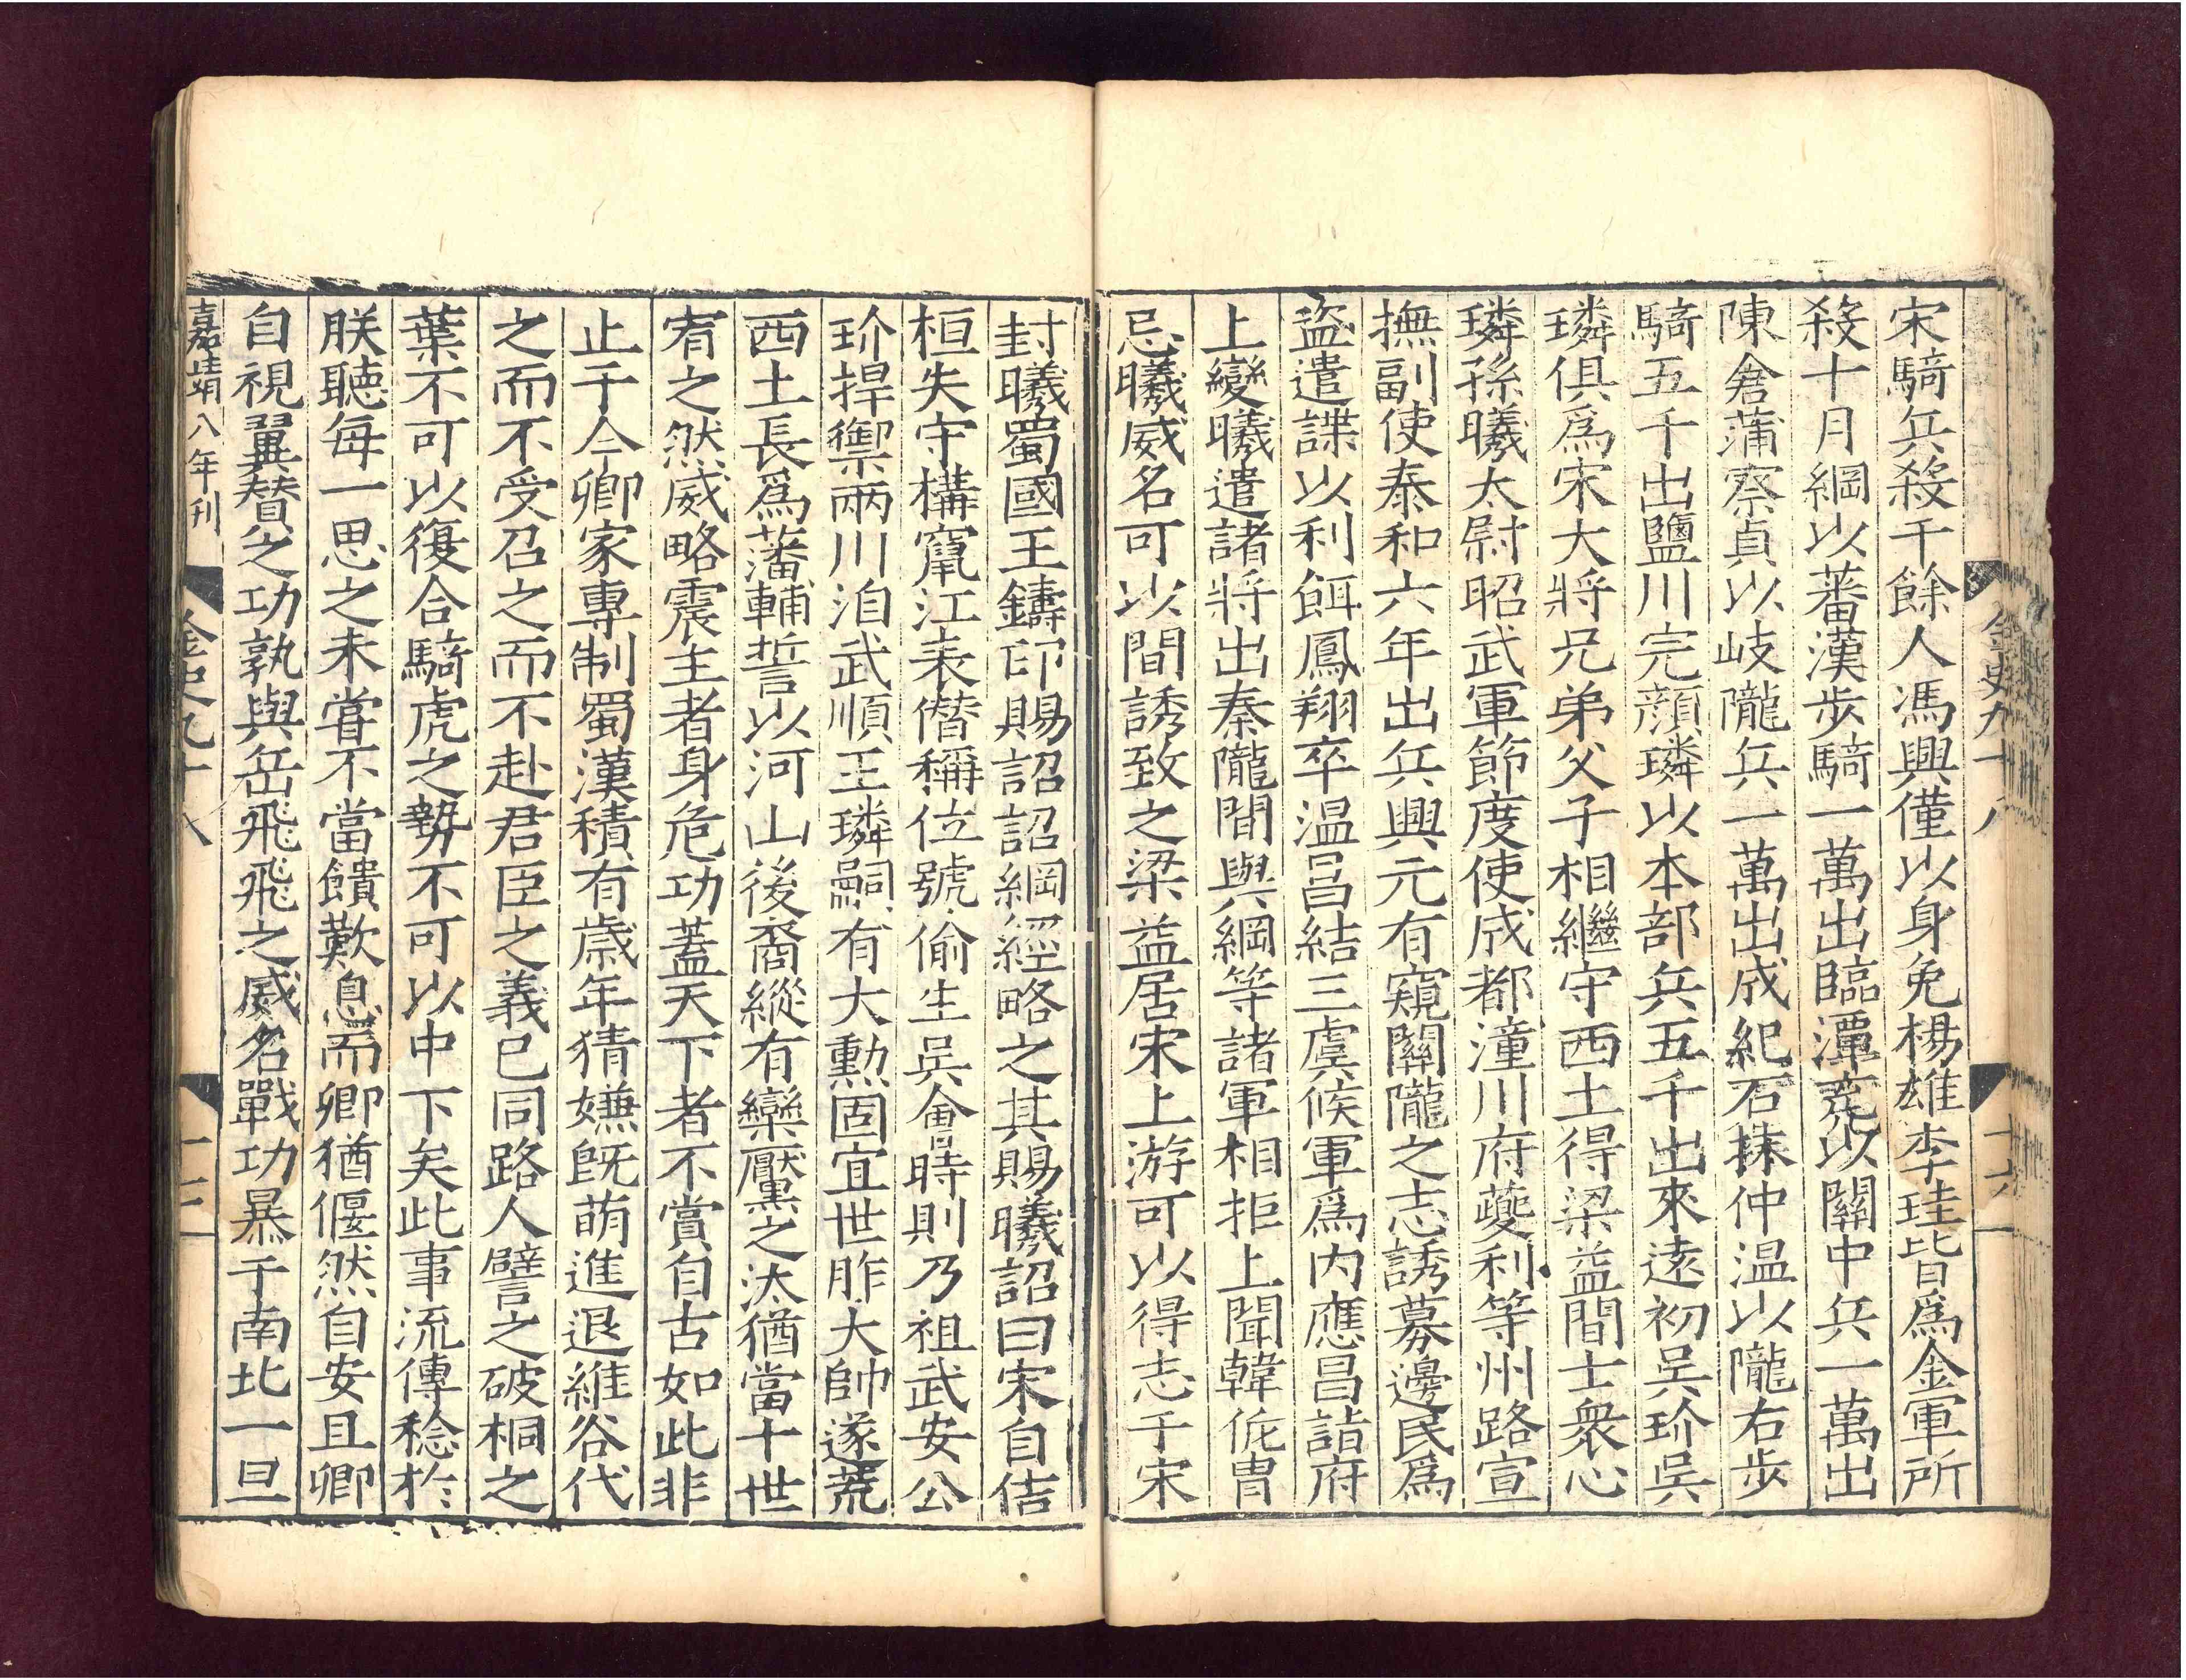 金史九十八
十六
宋騎兵殺千餘人馮興僅以身免楊雄李珪皆爲金軍所
殺十月綱以蕃漢步騎一萬出臨潭充以關中兵一萬出
陳倉蒲察貞以岐隴兵一萬出成紀石抹仲温以隴右步
騎五千出鹽川完顔璘以本部兵五千出來逺初吳玠吳
璘俱爲宋大將兄弟父子相繼守西土得梁益間士衆心
璘孫曦太尉昭武軍節度使成都潼川府夔利等州路宣
撫副使泰和六年出兵興元有窺關隴之志誘募邊民爲
盗遣諜以利餌鳳翔卒温昌結三虞候軍爲内應昌詣府
上變曦遣諸將出秦隴間與綱等諸軍相拒上聞韓侂冑
忌曦威名可以間誘致之梁益居宋上游可以得志于宋
封曦蜀國王鑄印賜詔詔綱經略之其賜曦詔曰宋自佶
桓失守構竄江表僭稱位號偷生吳會時則乃祖武安公
玠捍禦兩川洎武順王璘嗣有大勳固宜世胙大帥遂荒
西土長爲藩輔誓以河山後裔縱有欒黶之汰猶當十世
宥之然威略震主者身危功蓋天下者不賞自古如此非
止于今卿家專制蜀漢積有歲年猜嫌既萌進退維谷代
之而不受召之而不赴君臣之義已同路人譬之破桐之
葉不可以復合騎虎之勢不可以中下矣此事流傳稔於
朕聽每一思之未嘗不當饋歎息而卿猶偃然自安且卿
自視翼賛之功孰與岳飛飛之威名戰功暴于南北一旦
嘉靖八年刊
金史九十八